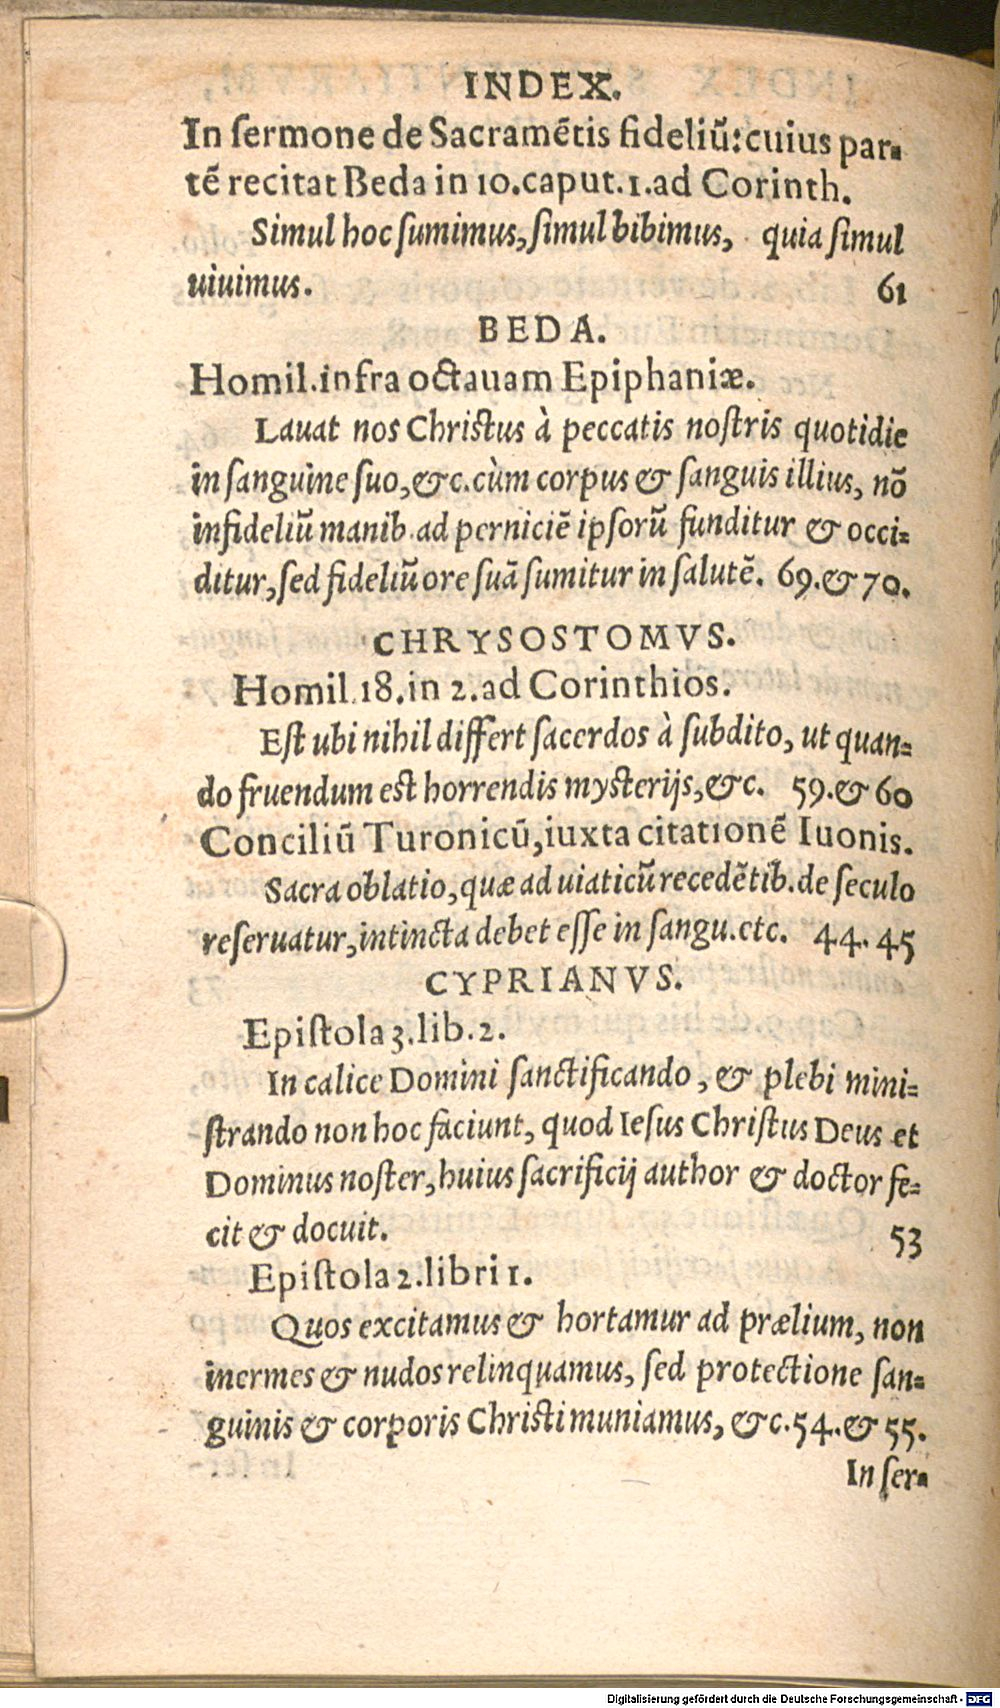 INDEX.
In sermone de Sacramētis fideliū: cuius par-
tē recitat Beda in 10. caput. 1. ad Corinth.
Simul hoc sumimus, simul bibimus, quia simul
uiuimus. 61
BEDA.
Homil. infra octauam Epiphaniæ.
Lauat nos Christus à peccatis nostris quotidie
in sanguine suo, &c. cùm corpus & sanguis illius, nō
infideliū manib. ad perniciē ipsorū funditur & occi-
ditur, sed fideliū ore suā sumitur in salutē. 69. & 70.
CHRYSOSTOMVS.
Homil. 18. in 2. ad Corinthios.
Est ubi nihil differt sacerdos à subdito, ut quan-
do fruendum est horrendis mysterijs, &c. 59. & 60
Conciliū Turonicū, iuxta citationē Iuonis.
Sacra oblatio, quæ ad uiaticū recedētib. de seculo
reseruatur, intincta debet esse in sangu. etc. 44. 45
CYPRIANVS.
Epistola 3. lib. 2.
In calice Domini sanctificando, & plebi mini-
strando non hoc faciunt, quod Iesus Christus Deus et
Dominus noster, huius sacrificij author & doctor fe-
cit & docuit. 53
Epistola 2. libri 1.
Quos excitamus & hortamur ad prælium, non
inermes & nudos relinquamus, sed protectione san-
guinis & corporis Christi muniamus, &c. 54. & 55.
In ser-
Digitalisierung gefördert durch die Deutsche Forschungsgemeinschaft - DFG